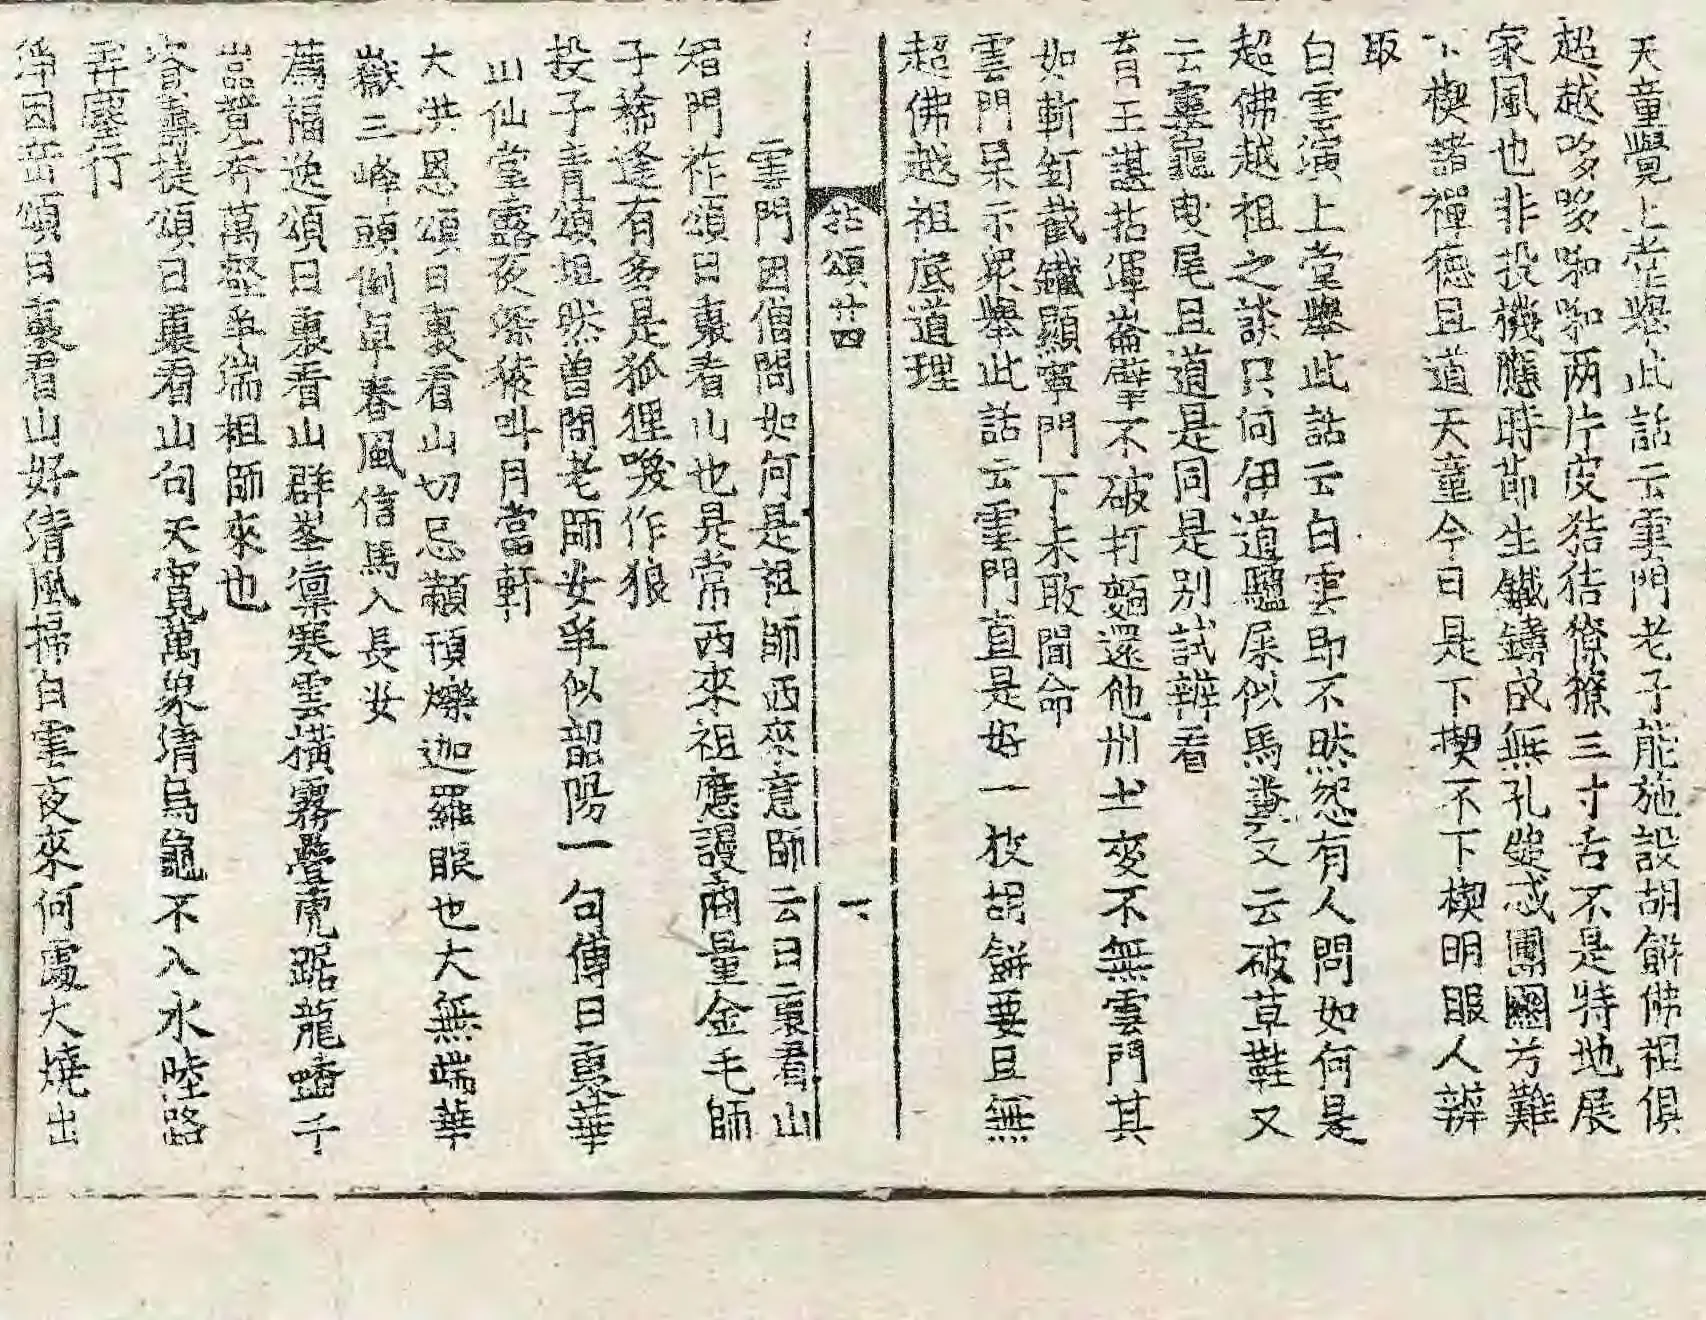 天童覺上堂舉此話云雲門老子能施設胡餅佛祖俱
超越哆哆啝啝兩片皮狤狤獠獠三寸舌不是特地展
家風也非投機應時節生鐵鑄成無孔鎚忒團圞芳難
下楔諸禪德且道天童今日是下楔不下楔明眼人辨
取
白雲演上堂舉此話云白雲即不然忽有人問如何是
超佛越祖之談只向伊道驢屎似馬糞又云破草鞋又
云靈龜曳尾且道是同是別試辨看
育王諶拈渾崙擘不破打麵還他州土麥不無雲門其
如斬釘截鐵顯寧門下未敢聞命
雲門杲示眾舉此話云雲門直是好一枚胡餅要且無
超佛越祖底道理
拈頌廿四
一
雲門因僧問如何是祖師西來意師云日裏看山
智門祚頌日裏看山也是常西來祖應謾商量金毛師
子稀逢有多是狐狸喚作狼
投子青頌坦然曾問老師安爭似韶陽一句傳日裏華
山仙掌露夜深猿叫月當軒
大洪恩頌日裏看山切忌顢頇爍迦羅眼也大無端華
嶽三峰頭倒卓春風信馬入長安
薦福逸頌日裏看山群峯凜寒雲橫霧疊虎踞龍蟠千
嵓競奔萬壑爭湍祖師來也
資壽捷頌日裏看山句天寬萬象清烏龜不入水陸路
弄塵行
淨因岳頌日裏看山好清風掃白雲夜來何處火燒出